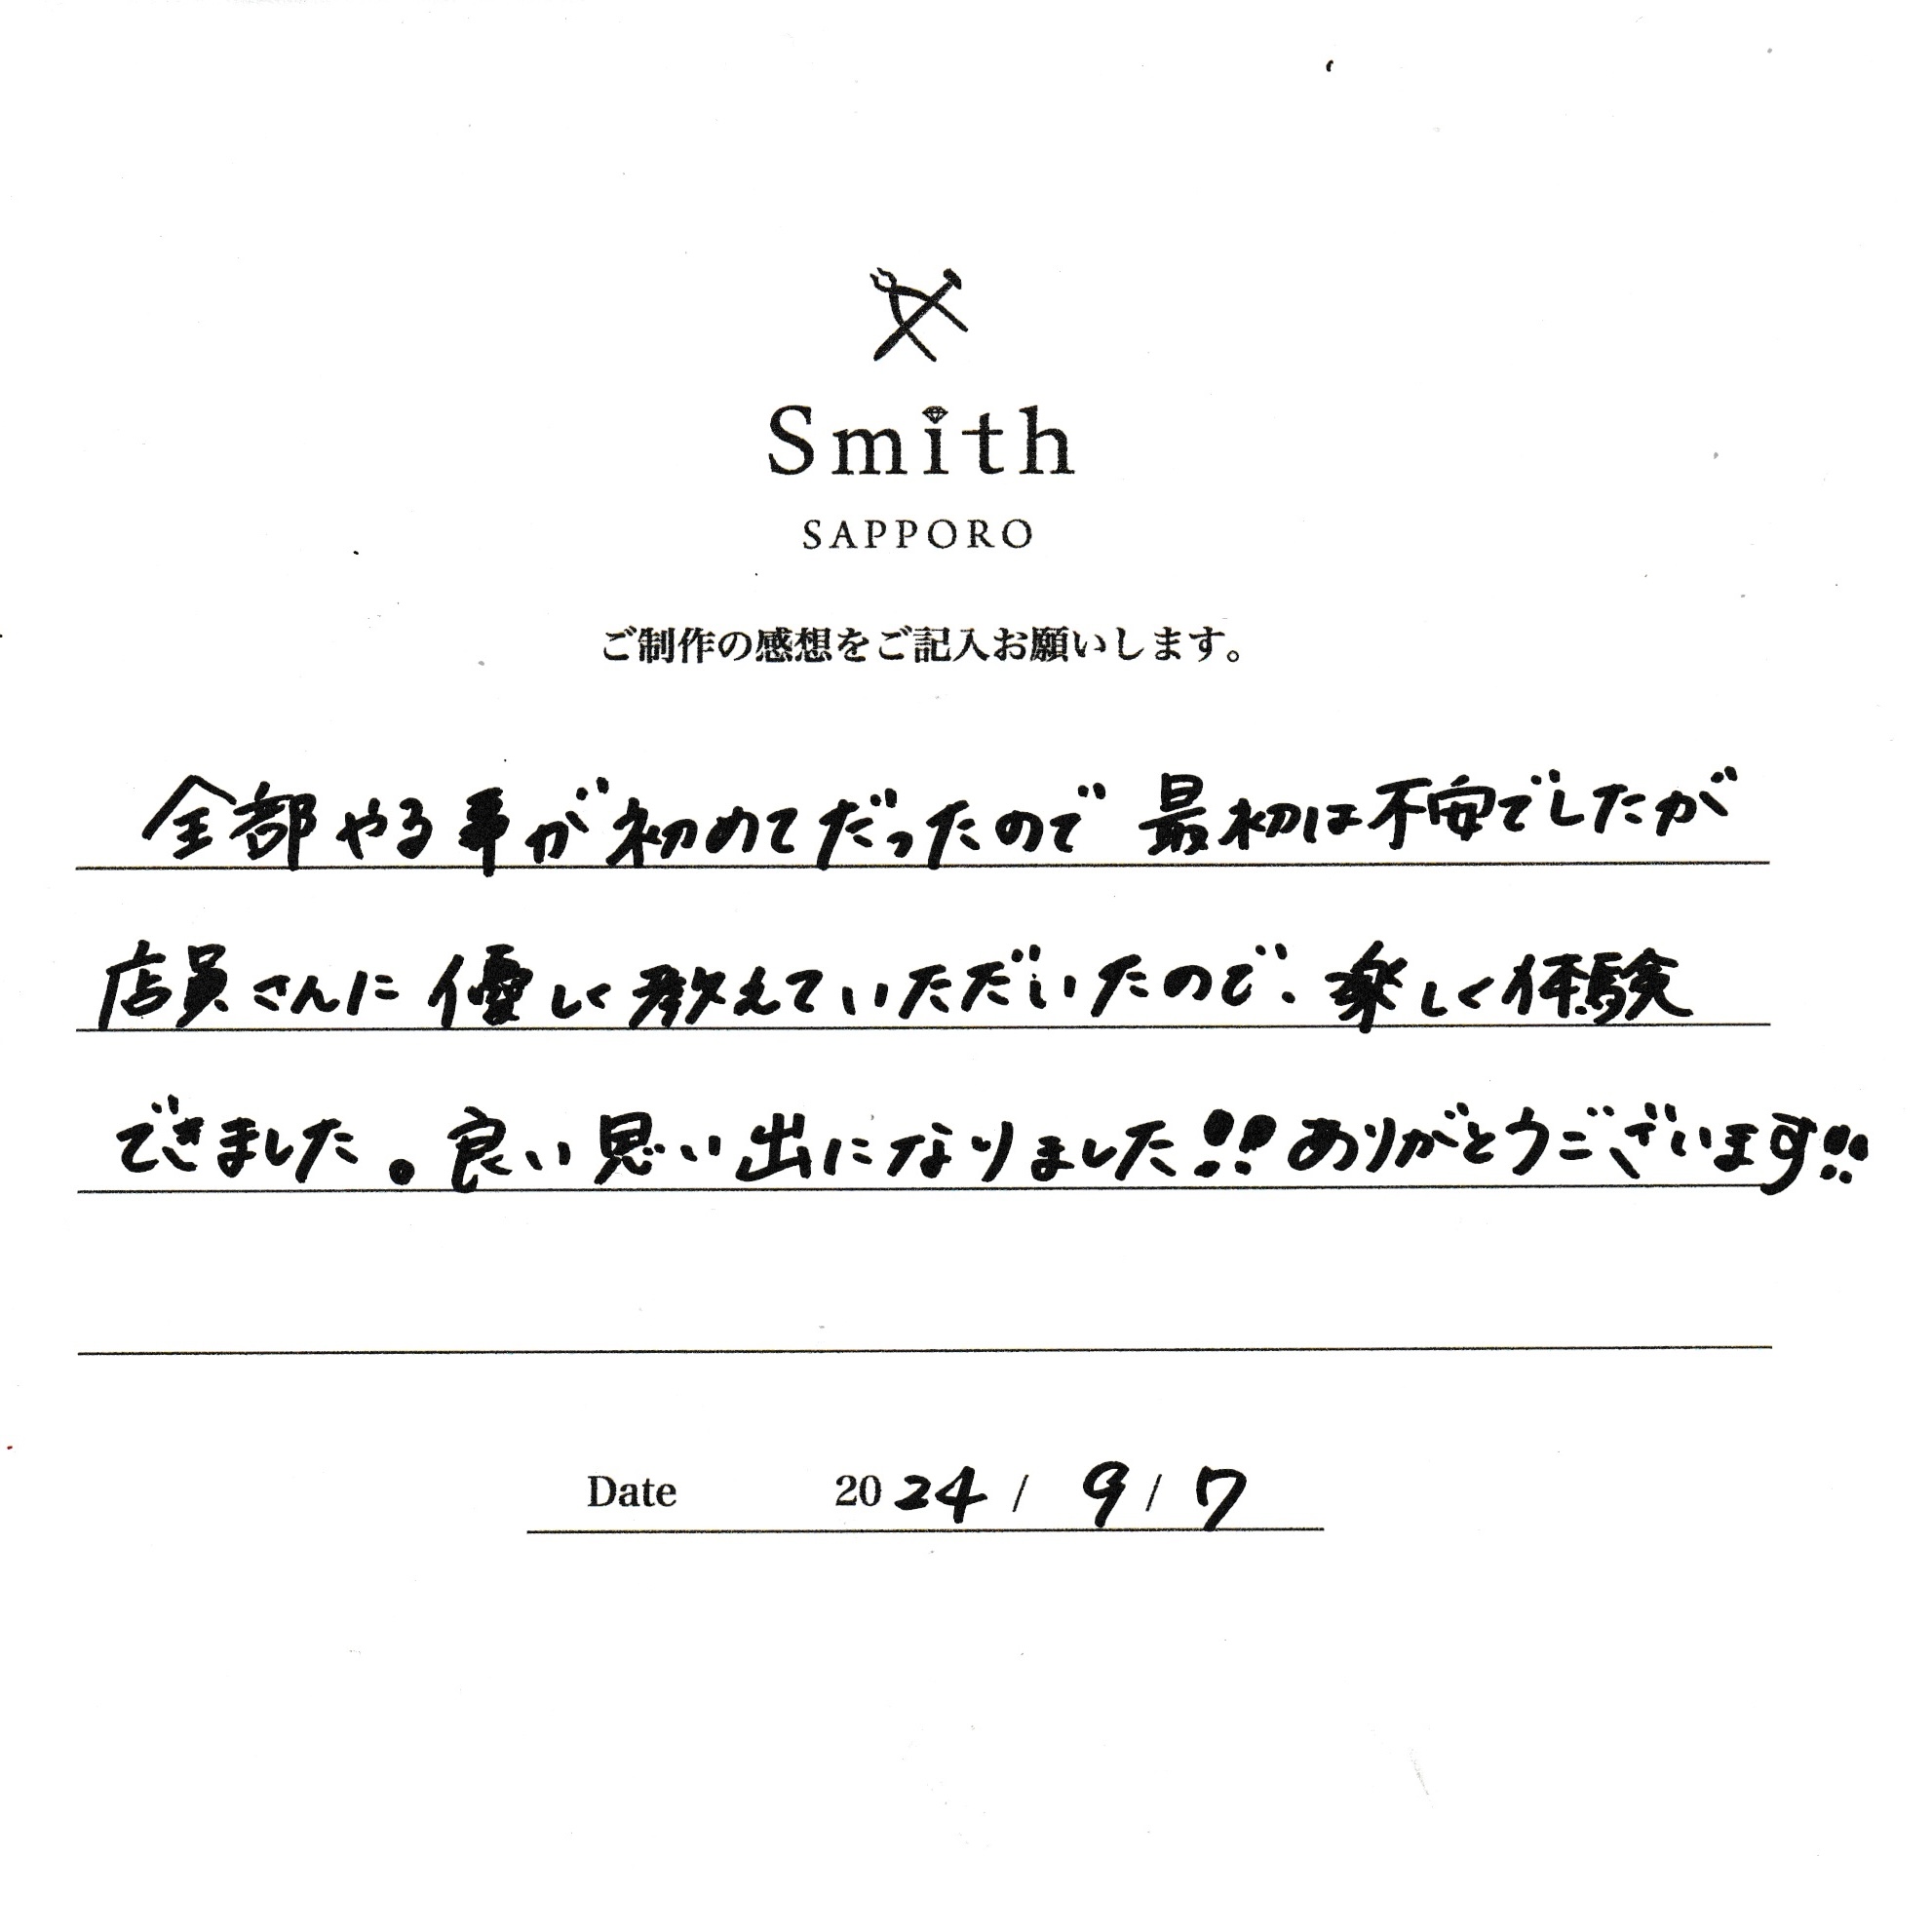 Smith
SAPPORO
ご制作の感想をご記入お願いします。
全部やる事が初めてだったので最初は不安でしたが
店員さんに優しく教えていただいたので、楽しく体験
できました。良い思い出になりました!!ありがとうございます!!
Date 2024 / 9 / 7